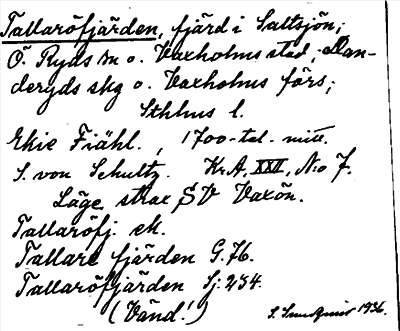 Tallaröfjärden, fjärd i Saltsjön;
Ö. Ryds sn o. Vaxholms stad; Dan-
deryds skg o. Vaxholms förs;
Sthlms l.
Ekie Fiähl., 1700-tal. mitt.
S. von Schultz. Kr.A. XXII, No 7.
Läge strax SV Vaxön.
Tallaröfj. ek.
Tallare fjärden G.76.
Tallaröfjärden Sj. 234.
(Vänd!) S. Sundquist 1936.